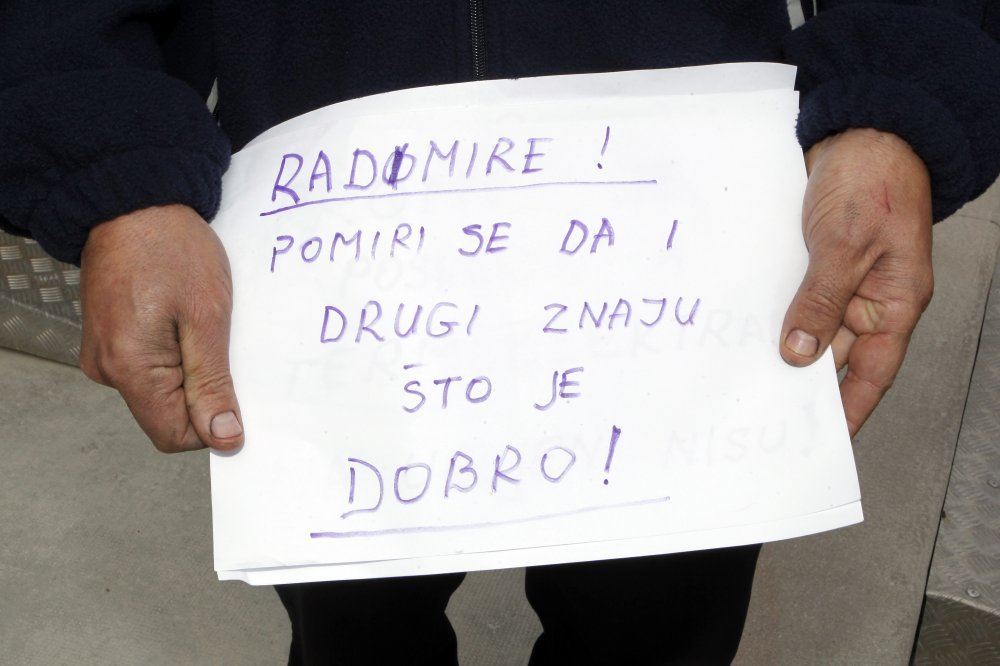 RADOMIRE !
POMIRI SE DA I
DRUGI ZNAJU
ŠTO JE
DOBRO!
NISU!